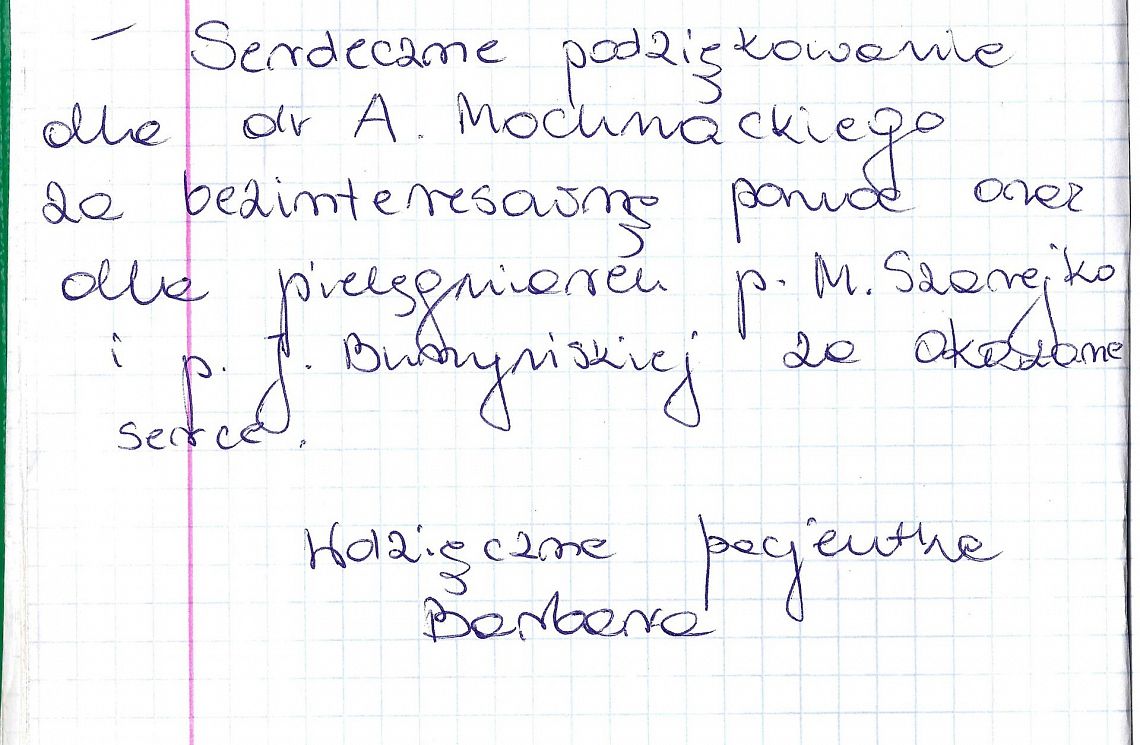 – Serdeczne podziękowanie
dla dr A. Mochnackiego
za bezinteresowną pomoc oraz
dla pielęgniarek p. M. Szarejko
i p. J. Buczyńskiej za okazane
serce.
Wdzięczna pacjentka
Barbara